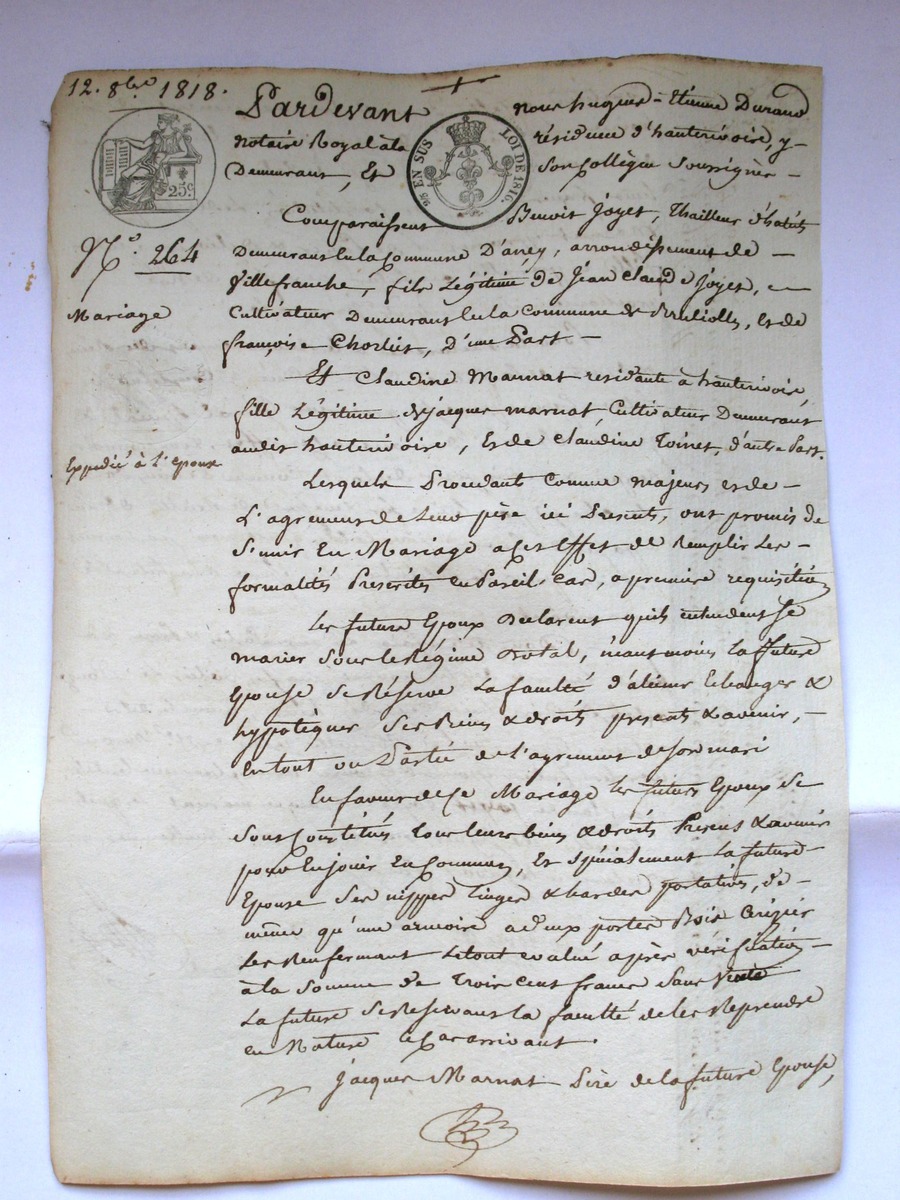 12. 8bre 1818.
Pardevant nous hugues-Etienne Durand
notaire Royal à la résidence d'hauterivoire, y-
Demeurant, Et son Collègue Soussignés -
25c.
EN SUS LOI DE 1816.
Comparaissent Benoit Joyet, thailleur d'habits
N.° 264
Demeurant en la Commune D'ancy, arrondissement de -
Villefranche, fils Légitime de Jean Claude Joyet, -
Mariage
Cultivateur Demeurant en la Commune de Et de
françoise D'une Part -
Et Claudine Marnat residante à hauterivoire,
fille Légitime de jacques marnat Cultivateur Demeurant
audit hauterivoire, Et de Claudine Toinet, d'autre Part.
Expedié à l'epoux
Lesquels Procédant Comme majeurs et de -
L'agrement de Leur père ici Presents, ont promis de
S'unir En Mariage a Cet Effet de Remplir Les -
formalités Prescrites en Pareil Cas, a premiere requisition
Les future Epoux Declarent quils entendent Se
marier Sous le Régime Dotal, néanmoins La future
Epouse Se Réserve La faculté d'aliéner Echanger &
hypotéquer Ses Biens & droits présents & avenir, -
En tout ou Partie de l'agrement de Son mari
En faveur de Ce Mariage les futurs Epoux Se
Sont Constitués tous leurs biens & droits Présens & avenir
pour En jouir En Commun, Et Spécialement La future
Epouse Ses nippes Linges & hardes portatives, de -
même qu'une armoire a deux portes Bois Cerisier
Les Renfermant Le tout evalué après vérification -
à la Somme de trois Cent francs Sans Vente
La future Se Réservant la faculté de les Reprendre
en Nature le Cas arrivant.
Jacques Marnat Père de la future Epouse,